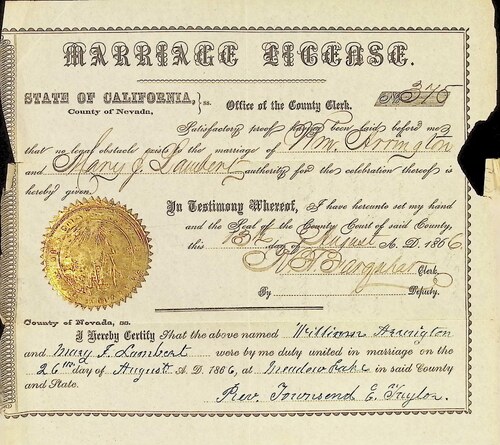 MARRIAGE LICENSE.
STATE OF CALIFORNIA, } ss.
County of Nevada,
Office of the County Clerk.
No. 345
Satisfactory proof having been laid before me
that no legal obstacle exists to the marriage of Wm. Arrington
and Mary J. Lambert authority for the celebration thereof is
hereby given.
In Testimony Whereof, I have hereunto set my hand
and the Seal of the County Court of said County,
this 13th day of August A. D. 1866
Clerk,
By Deputy.
County of Nevada, ss.
I Hereby Certify That the above named William Arrington
and Mary J. Lambert were by me duly united in marriage on the
26th day of August A. D. 1866, at Meadow Lake in said County
and State.
Rev. Townsend E. Taylor.